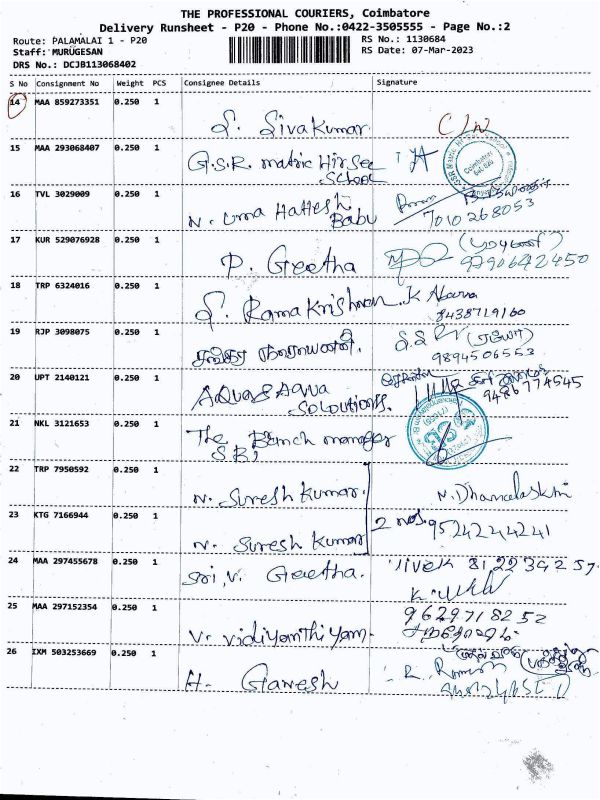 THE PROFESSIONAL COURIERS, Coimbatore
Delivery Runsheet - P20 - Phone No.:0422-3505555 - Page No.:2
Route: PALAMALAI 1 - P20
RS No.: 1130684
Staff: MURUGESAN
RS Date: 07-Mar-2023
DRS No.: DCJB113068402
S No Consignment No Weight PCS Consignee Details Signature
14 MAA 859273351 0.250 1
S. Sivakumar
15 MAA 293068407 0.250 1
G.S.R. matric Hir Sec
School
16 TVL 3029009 0.250 1
N. Uma Hattesh
Babu
7010268053
17 KUR 529076928 0.250 1
P. Geetha
9790642450
18 TRP 6324016 0.250 1
S. Ramakrishnan
8438719160
19 RJP 3098075 0.250 1
9894506553
20 UPT 2140121 0.250 1
Aqua & Aqua
Solutions.
9486774545
21 NKL 3121653 0.250 1
The Bench manager
SBI
22 TRP 7950592 0.250 1
N. Suresh Kumar.
N. Dhanalaskmi
23 KTG 7166944 0.250 1
2 nos. 9524244241
N. Suresh Kumar
24 MAA 297455678 0.250 1
Sri. V. Geetha.
25 MAA 297152354 0.250 1
9629718252
V. Vidiyanthiyam.
26 IXM 503253669 0.250 1
H. Ganesh